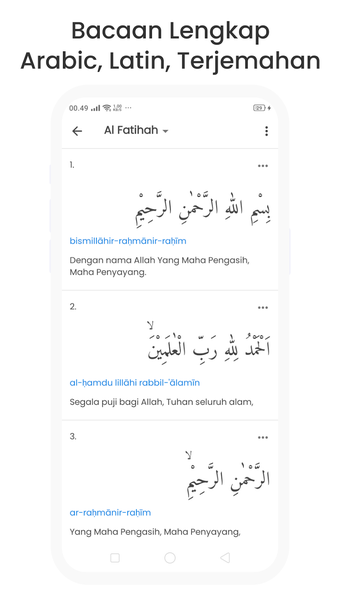 Bacaan Lengkap
Arabic, Latin, Terjemahan
00.49
Al Fatihah
1.
بِسْمِ اللّٰهِ الرَّحْمٰنِ الرَّحِيْمِ
bismillāhir-raḥmānir-raḥīm
Dengan nama Allah Yang Maha Pengasih,
Maha Penyayang.
2.
اَلْحَمْدُ لِلّٰهِ رَبِّ الْعٰلَمِيْنَۙ
al-ḥamdu lillāhi rabbil-'ālamīn
Segala puji bagi Allah, Tuhan seluruh alam,
3.
الرَّحْمٰنِ الرَّحِيْمِۙ
ar-raḥmānir-raḥīm
Yang Maha Pengasih, Maha Penyayang,